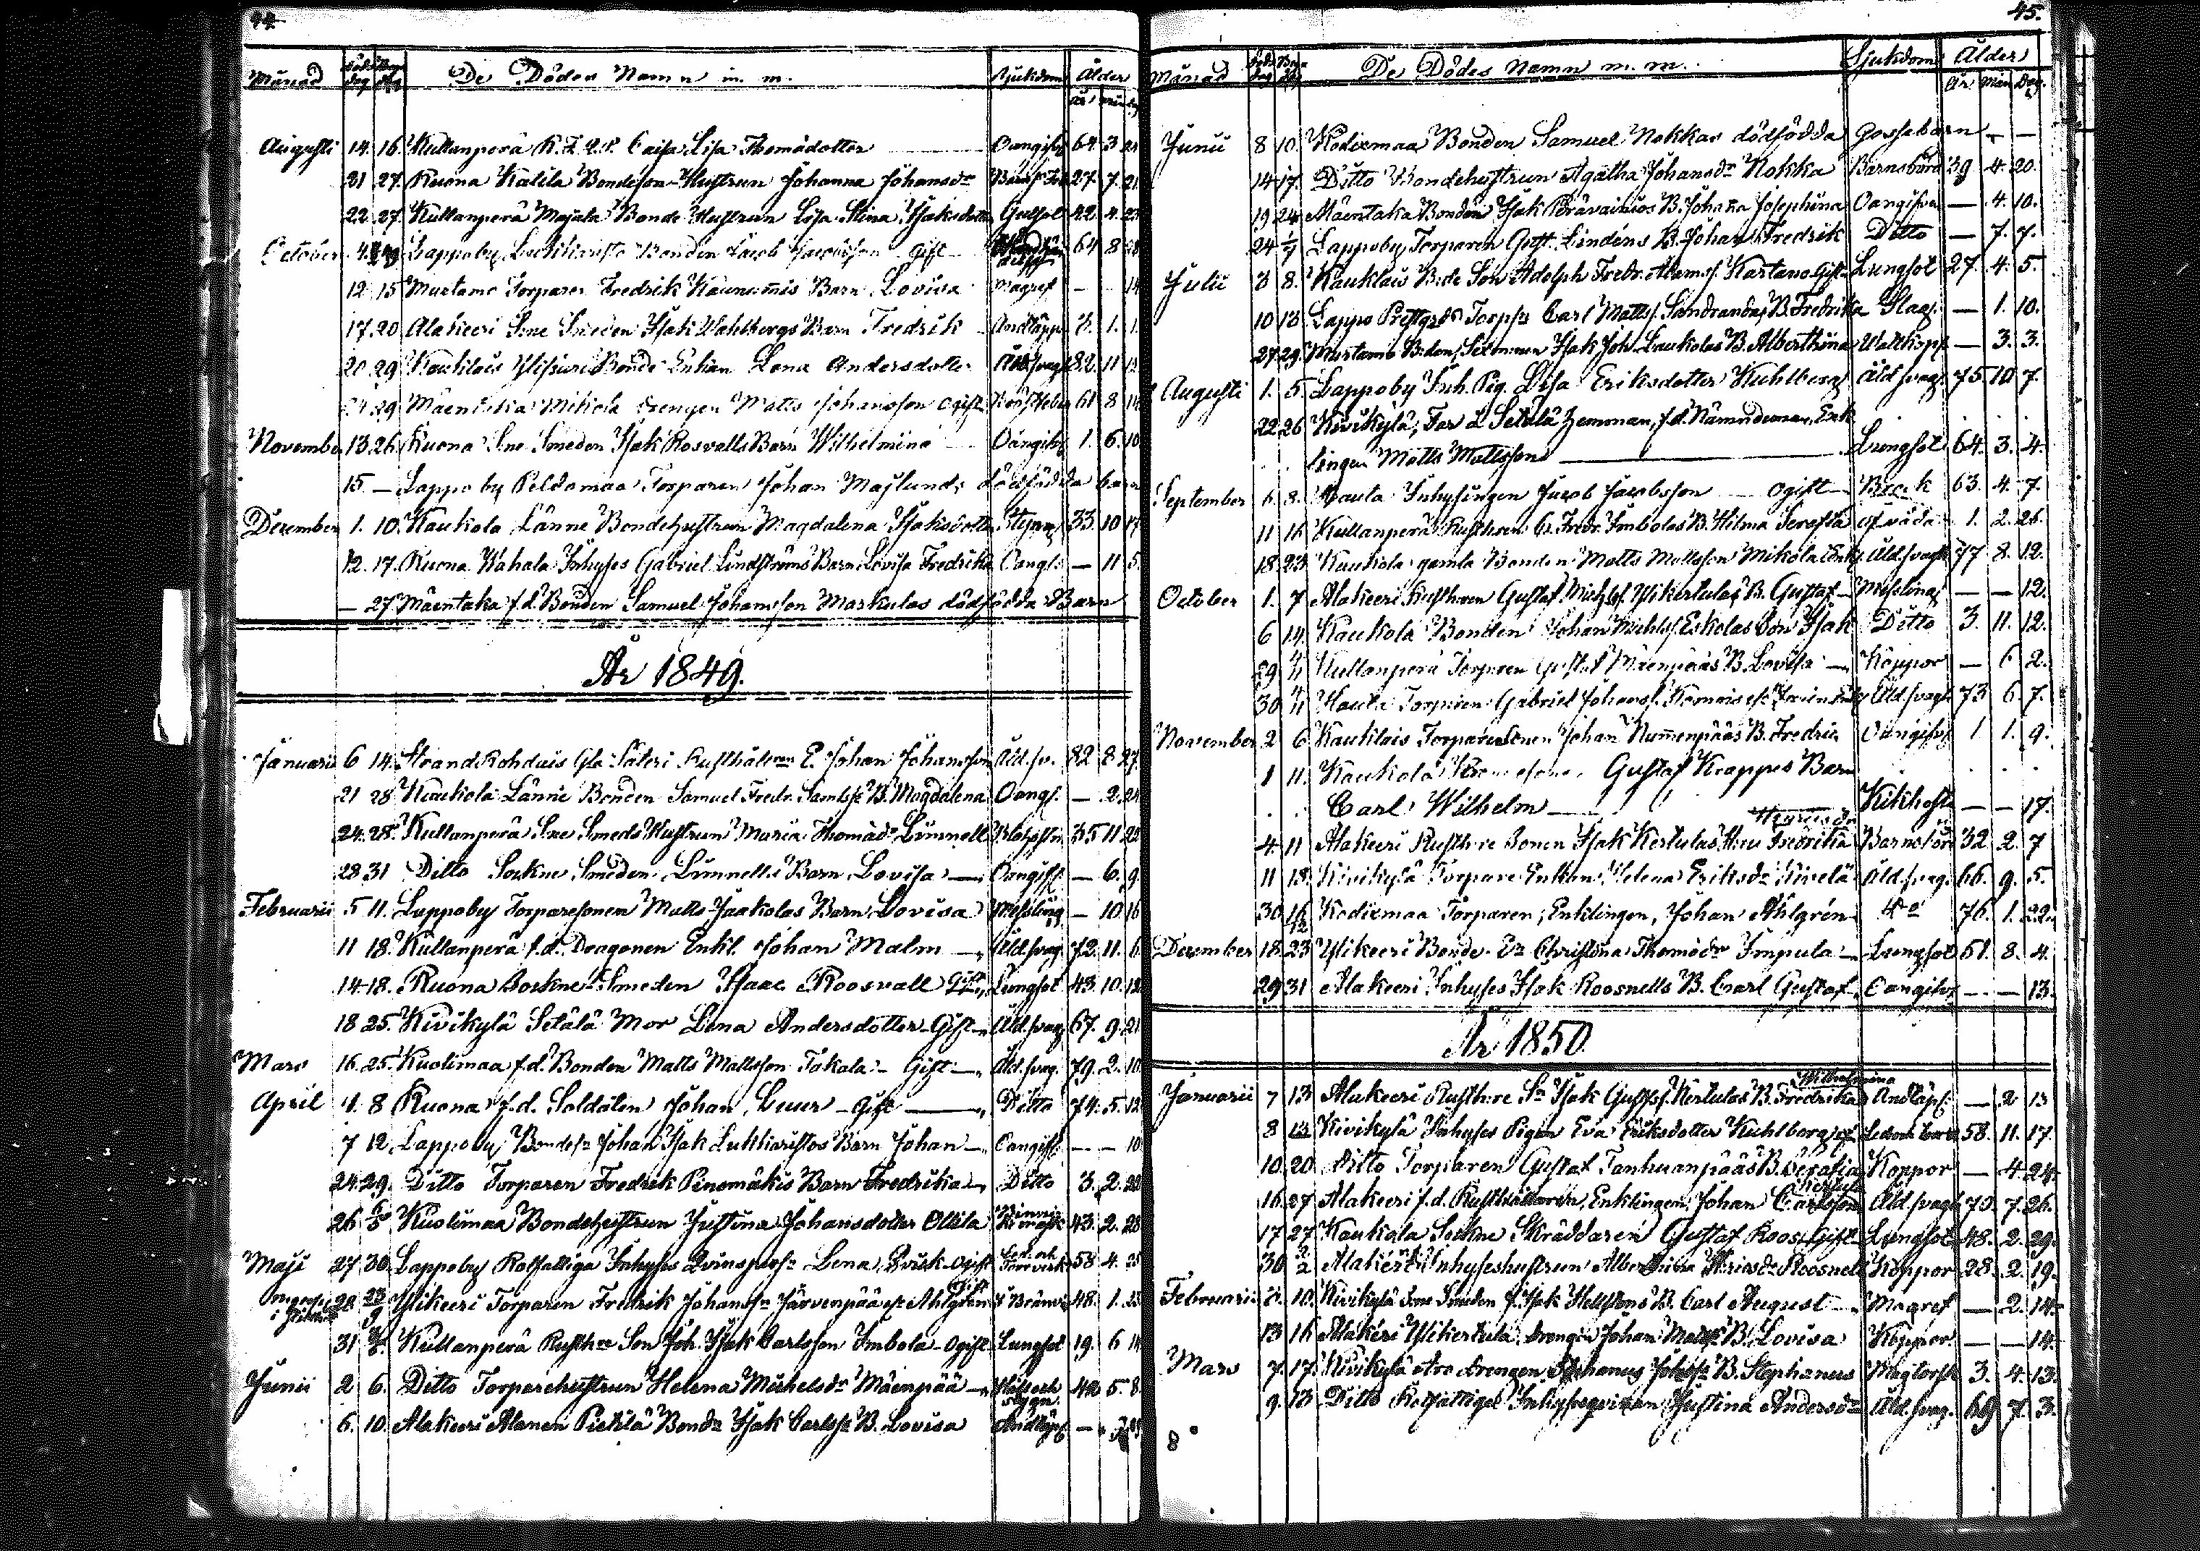 44.
Månad Död. dag Begr. dag De Dödes Namn m. m. Sjukdom Ålder
År Mån dag
Augusti 14. 16. Kullanperä Caisa Lisa Thomädotter Oangifv 64 3
21 27. Ruona Kalila Bondeson Hustrun Johanna Johansdr 27. 7. 21
22. 27. Kullanperä Majala Bonde Hustrun Lisa Stina Isaksdotter Gulsot 42 4. 23
October 4. Lappoby Luhkaristo Bonden Jacob Jacobsson Gift 64 8 28
12 15 Murtamo Torparen Fredrik Kaunismäis Barn Lovisa Magref — 14
17. 20 Alakeeri Sne Smeden Isak Wahlbergs Barn Fredrik Andtäppa 3. 1. 1.
20. 29 Kautilais Ylisiuri Bonde Enkan Lena Andersdotter Åld.svag 82. 11 13
29 Mäentaka Mikola Drengen Matts Johansson ogift 61 8
November 13. 26. Ruona Sne Smeden Isak Rosvalls Barn Wilhelmina Oangifv 1. 6. 10
15. — Lappoby Peldomaa Torparen Johan Majlunds dödfödda barn
December 1. 10. Kaukola Länne Bondehustrun Magdalena Isaksdotter Stygn 33. 10 17
12. 17. Ruona Kahala Inhyses Gabriel Lindströms Barn Lovisa Fredrika Oangf. — 11 5.
— 27 Mäentaka f.d. Bonden Samuel Johansson Markulas dödfödda Barn
År 1849.
Januarii 6 14. Strand Kohdais Gla Säteri Rusthållaren E. Johan Johansson Åld.sv. 82 8 27.
21 28 Kaukola Länne Bonden Samuel Fredr. Samlss B. Magdalena Oangf. — 2. 24
24. 28. Kullanperä Sne Smeds Hustrun Maria Thomädr Linnell 35 11 22
28 31 Ditto Sockne Smeden Linnells Barn Lovisa Oangift — 6. 9.
Februarii 5 11. Lappoby Torparesonen Matts Jaakolas Barn Lovisa Messling — 10 16
11 18. Kullanperä f.d. Dragonen Enkl. Johan Malm Åld.svag. 72. 11. 6
14. 18. Ruona Sockne Smeden Isaac Roosvall Gift Lungsot 43. 10. 12
18 25. Kivikylä Setälä Mor Lena Andersdotter Gift Åld.svag 67. 9. 21
Mars 16. 25. Kuolimaa f.d. Bonden Matts Mattsson Tokala Gift Åld.svag. 79. 2. 10
April 4. 8 Ruona f.d. Soldaten Johan Luur gift Ditto 74. 5. 12
7 12 Lappoby Bondeson Johan Isak Luhkaristos Barn Johan Oangift — — 10
24. 29. Ditto Torparen Fredrik Pinomäkis Barn Fredrika Ditto 3. 2. 22
26 6/5 Kuolimaa Bondehustrun Justina Johansdotter Ollila Binnikemask 43. 2. 28
Maji 27 30. Lappoby Rotfattiga Inhyses Qvinspers: Lena Prisk ogift 58 4. 25
28 Ylikeeri Torparen Fredrik Johanss Järvenpää Ahlgren Gift 48. 1. 23
31 Kullanperä Rusth:re Son Joh. Isak Carlsson Imbola ogift Lungsot 19. 6 14
Junii 2 6. Ditto Torparehustrun Helena Michelsdr Mäenpää Håll och stygn 42 5 8.
6. 10. Alakeeri Alanen Pietilä Bondn Isak Carlss B. Lovisa Andtäpt —
45.
Månad Död. dag Beg. dag De Dödes Namn m. m. Sjukdom Ålder
År Mån Dag.
Junii 8 10. Kodixmaa Bonden Samuel Nokkas dödfödda gossebarn — —
14 17. Ditto Bondehustrun Agatha Johansdr Nokka Barnsbörd 39 4. 20.
19 24 Mäentaka Bonden Isak Perävainios B. Johana Josephina Oangifven — 4. 10.
24 1/7 Lappoby Torparen Gott. Lindéns B. Johan Fredrik Ditto — 7. 7.
Julii 3 8. Kauklais Bnde Son Adolph Fredr. Abrams. Kartano Gift Lungsot 27 4. 5.
10 13 Lappo Prestgrds Torpn Carl Mattss. Sandrandas B. Fredrika Slag. — 1. 10.
27 29. Murtamo Bonden Isak Joh. Laukolas B. Alberthina — 3. 3.
Augusti 1. 5. Lappoby Inh. Pig. Lisa Eriksdotter Kuhlberg Åld.svag. 75. 10 7.
22 26 Kivikylä, Far å Setälä hemman, f.d. Nämndeman, Enk
lingen Matts Mattsson Lungsot 64. 3. 4.
September 6. 8. Hauta Inhysingen Jacob Jacobsson ogift Bråck 63. 4. 7.
11 16 Kullanperä Rusthren C. Fredr. Imbolas B. Hilma Serafia af våda 1. 2. 26.
18. 23 Kaukola gamla Bonden Matts Mattsson Mikola Enkl. Åld.svag 77 8. 12.
October 1. 7 Alakeeri Rusthren Gustaf Michls. Ylikertulas B. Gustaf Messling — — 12.
6 14. Kaukola Bonden Johan Michls. Eskolas Son Isak Ditto 3. 11. 12.
29 4/11 Kullanperä Torparen Gustaf Mäenpääs B. Lovisa Koppor — 6 2.
30 4/11 Hauta Torparen Gabriel Johanss. Åld.svag 73 6. 7.
November 2 6 Kautilais Torparesonen Johan Nummenpääs B. Fredric Oangifvet 1 1. 9.
1 11. Kaukola Gustaf Krappes Barn
Carl Wilhelm Kikhosta — — 17.
4 11 Alakeeri Rusth:re Sonen Isak Kertulas Hustru Fredrika Henricsdr Barnsbörd 32. 2. 7
11 18. Kivikylä Torpare Enkan Helena Eriksdr Kivelä Åld.svag. 66. 9. 5.
30 16/12 Kodixmaa Torparen, Enklingen, Johan Ahlgrén do 76. 1. 22.
December 18. 23 Ylikeeri Bonde E:a Christina Thomädr Impula Lungsot 61. 8. 4.
29 31 Alakeeri Inhyses Isak Roosnells B. Carl Gustaf Oangifvet — — 13.
År 1850.
Januarii 7 13 Alakeeri Rusth:re Sn Isak Gustfs. Kertulas B. Fredrika Wilhelmina Andtäpt. — 2 13
8 13 Kivikylä Inhyses Pigan Eva Eriksdotter Kuhlberg 58. 11. 17.
10. 20 Ditto Torparen Gustaf Tanhuanpääs B. Serafia Koppor — 4. 24
16. 27 Alakeeri f.d. Rusthållaren, Enklingen, Johan Carlsson Kertula Åld.svag 79. 7. 26.
17 27 Kaukola Sockne Skräddaren Gustaf Roos Gift Lungsot 48. 2. 29.
30 2/2 Alakeeri Inhyseshustrun Albertina Henricsdr Roosnell Koppor 28. 2. 19.
Februarii 8. 10. Kivikylä Sne Smeden Isak Hellstens B. Carl August Magref — 2. 14.
13 16 Alakeeri Ylikertula Drengen Johan Mattss B. Lovisa Koppor — — 14.
Mars 7. 17. Kivikylä Aro Drengen Stephanus Johss B. Stephanus Magtorsk 3. 4. 13.
9. 13 Ditto Rotfattiges Inhysesqvinnan Justina Andersdr Åld.svag. 69 7. 3.